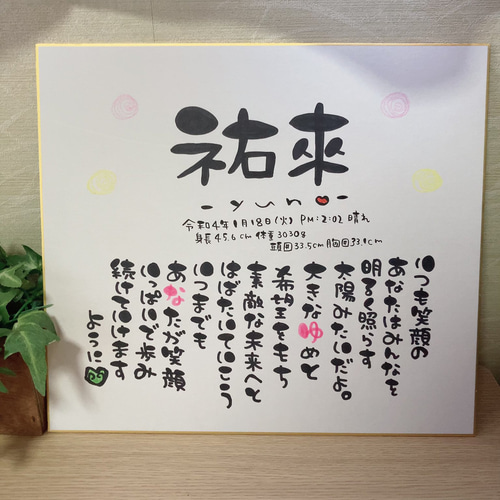 祐來
-yuna-
令和4年1月18日(火) PM:2:02 晴れ
身長45.6cm 体重3030g
頭囲33.5cm 胸囲33.1cm
いつも笑顔の
あなたはみんなを
明るく照らす
太陽みたいだよ。
大きなゆめと
希望をもち
素敵な未来へと
はばたいていこう
いつまでも
あなたが笑顔
いっぱいで歩み
続けていけます
ように